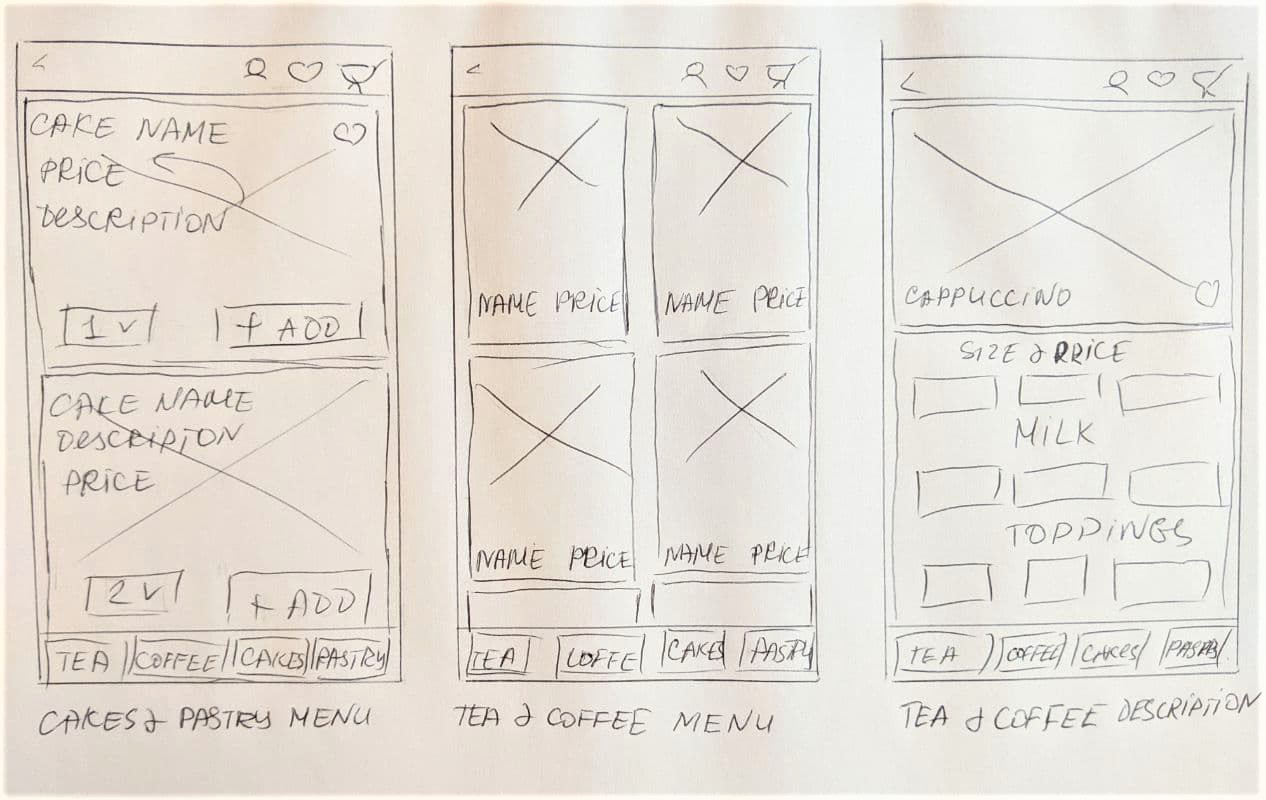 CAKE NAME
PRICE
DESCRIPTION
1 v
+ ADD
CAKE NAME
DESCRIPTON
PRICE
2 v
+ ADD
TEA COFFEE CAKES PASTRY
CAKES & PASTRY MENU
NAME PRICE
NAME PRICE
NAME PRICE
NAME PRICE
TEA COFFE CAKES PASTRY
TEA & COFFEE MENU
CAPPUCCINO
SIZE & PRICE
MILK
TOPPINGS
TEA COFFEE CAKES
TEA & COFFEE DESCRIPTION